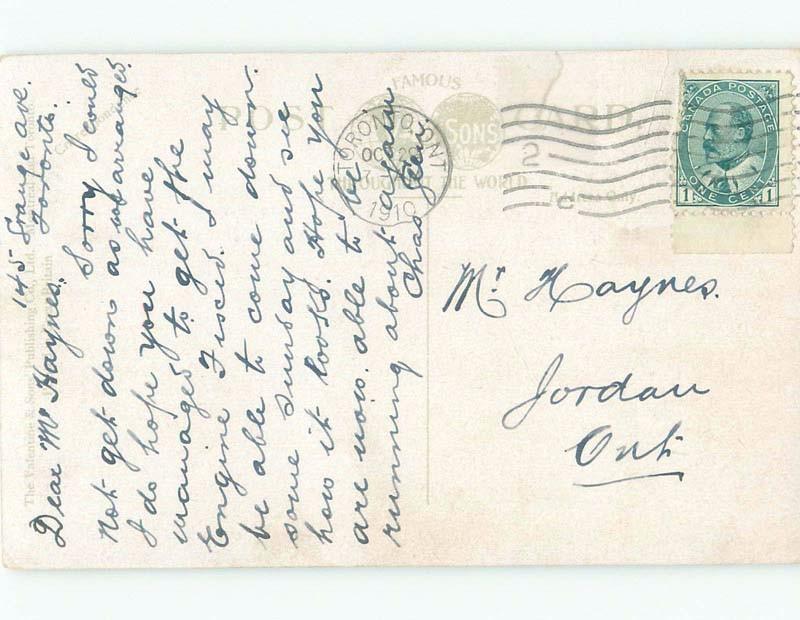 145 Grange ave.
Toronto.
Dear Mr Haynes.
Sorry I could
not get down as was arranged.
I do hope you have
managed to get the
Engine Fixed. I may
be able to come down.
some Sunday and see
how it looks. Hope you
are now able to be
running about again
Chas
FAMOUS
POST CARD
SONS
THROUGHOUT THE WORLD
Address Only.
TORONTO, ONT
OCT 29
1910
2
C
CANADA POSTAGE
1 ONE CENT 1
Mr Haynes.
Jordan
Ont
The Valentine & Sons Publishing Co., Ltd.